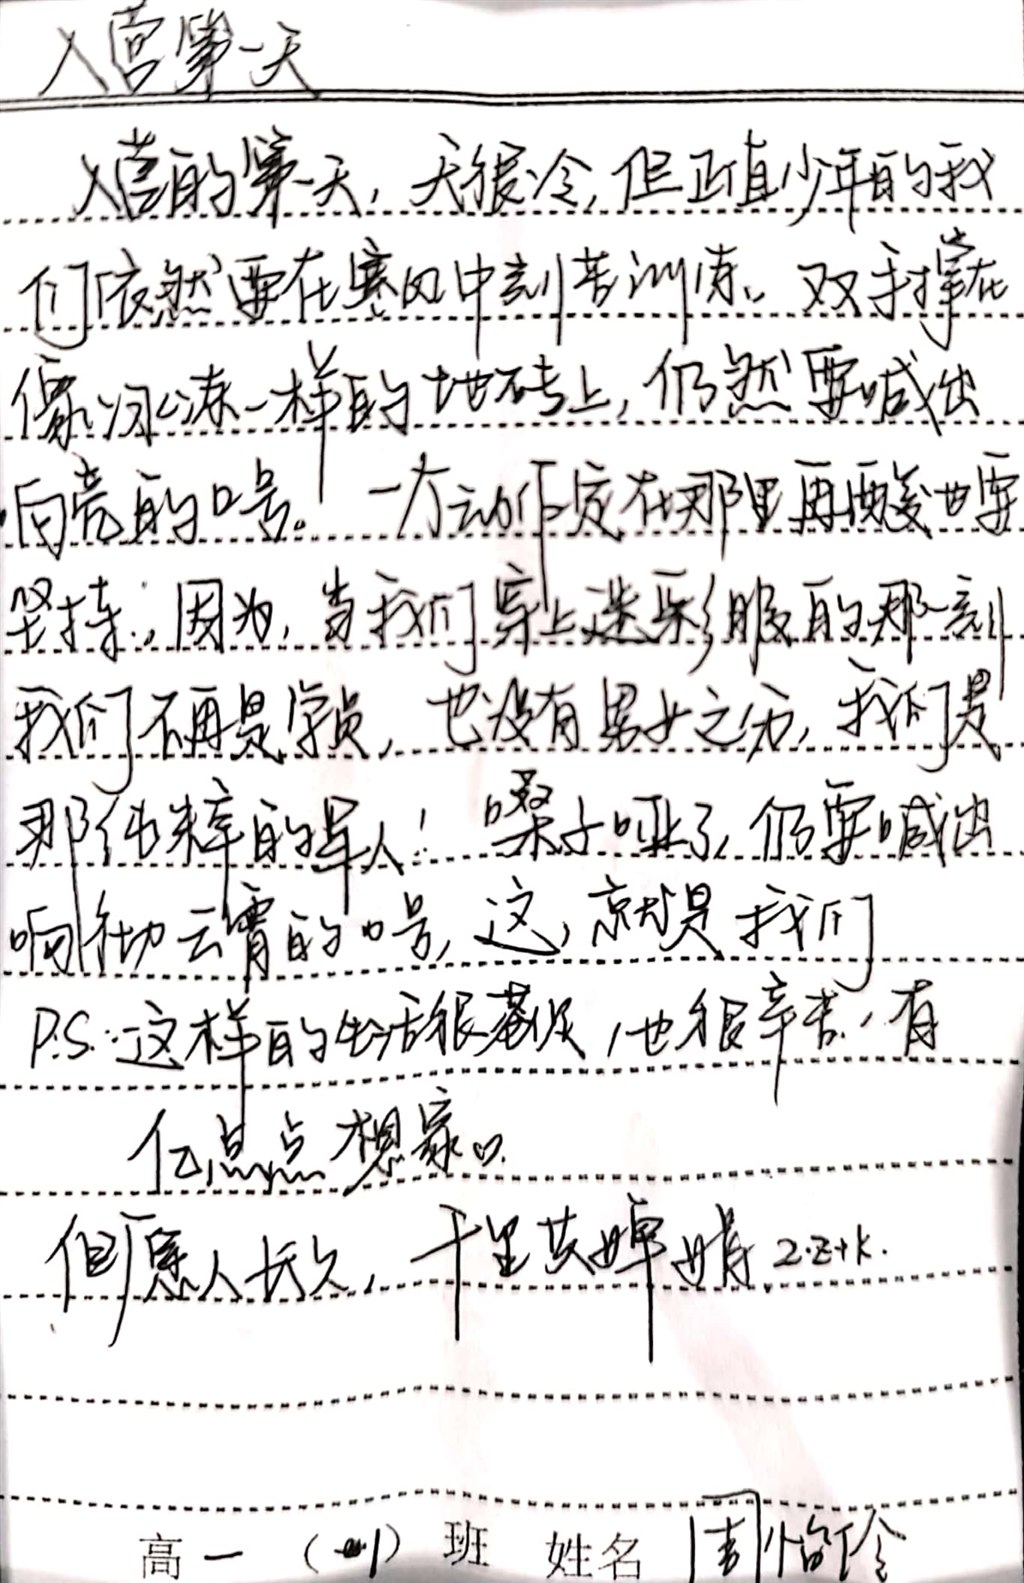 入营第一天
入营的第一天，天很冷，但正直少年的我
们依然要在寒风中刻苦训练。双手撑在
像冰冻一样的地砖上，仍然要喊出
响亮的口号。一个动作定在那里再酸也要
坚持，因为，当我们穿上迷彩服的那一刻
我们不再是学员，也没有男女之分，我们是
那纯粹的军人！嗓子哑了，仍要喊出
响彻云霄的口号，这，就是我们
P.S.：这样的生活很艰，也很辛苦，有
亿点点想家。
但愿人长久，千里共婵娟 z·z+k.
高一（1）班 姓名 周怡伶